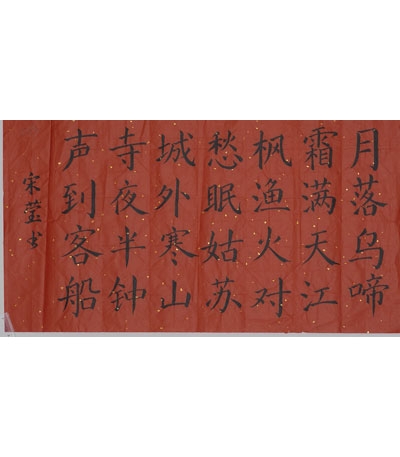 月落乌啼
霜满天江
枫渔火对
愁眠姑苏
城外寒山
寺夜半钟
声到客船
宋莹书